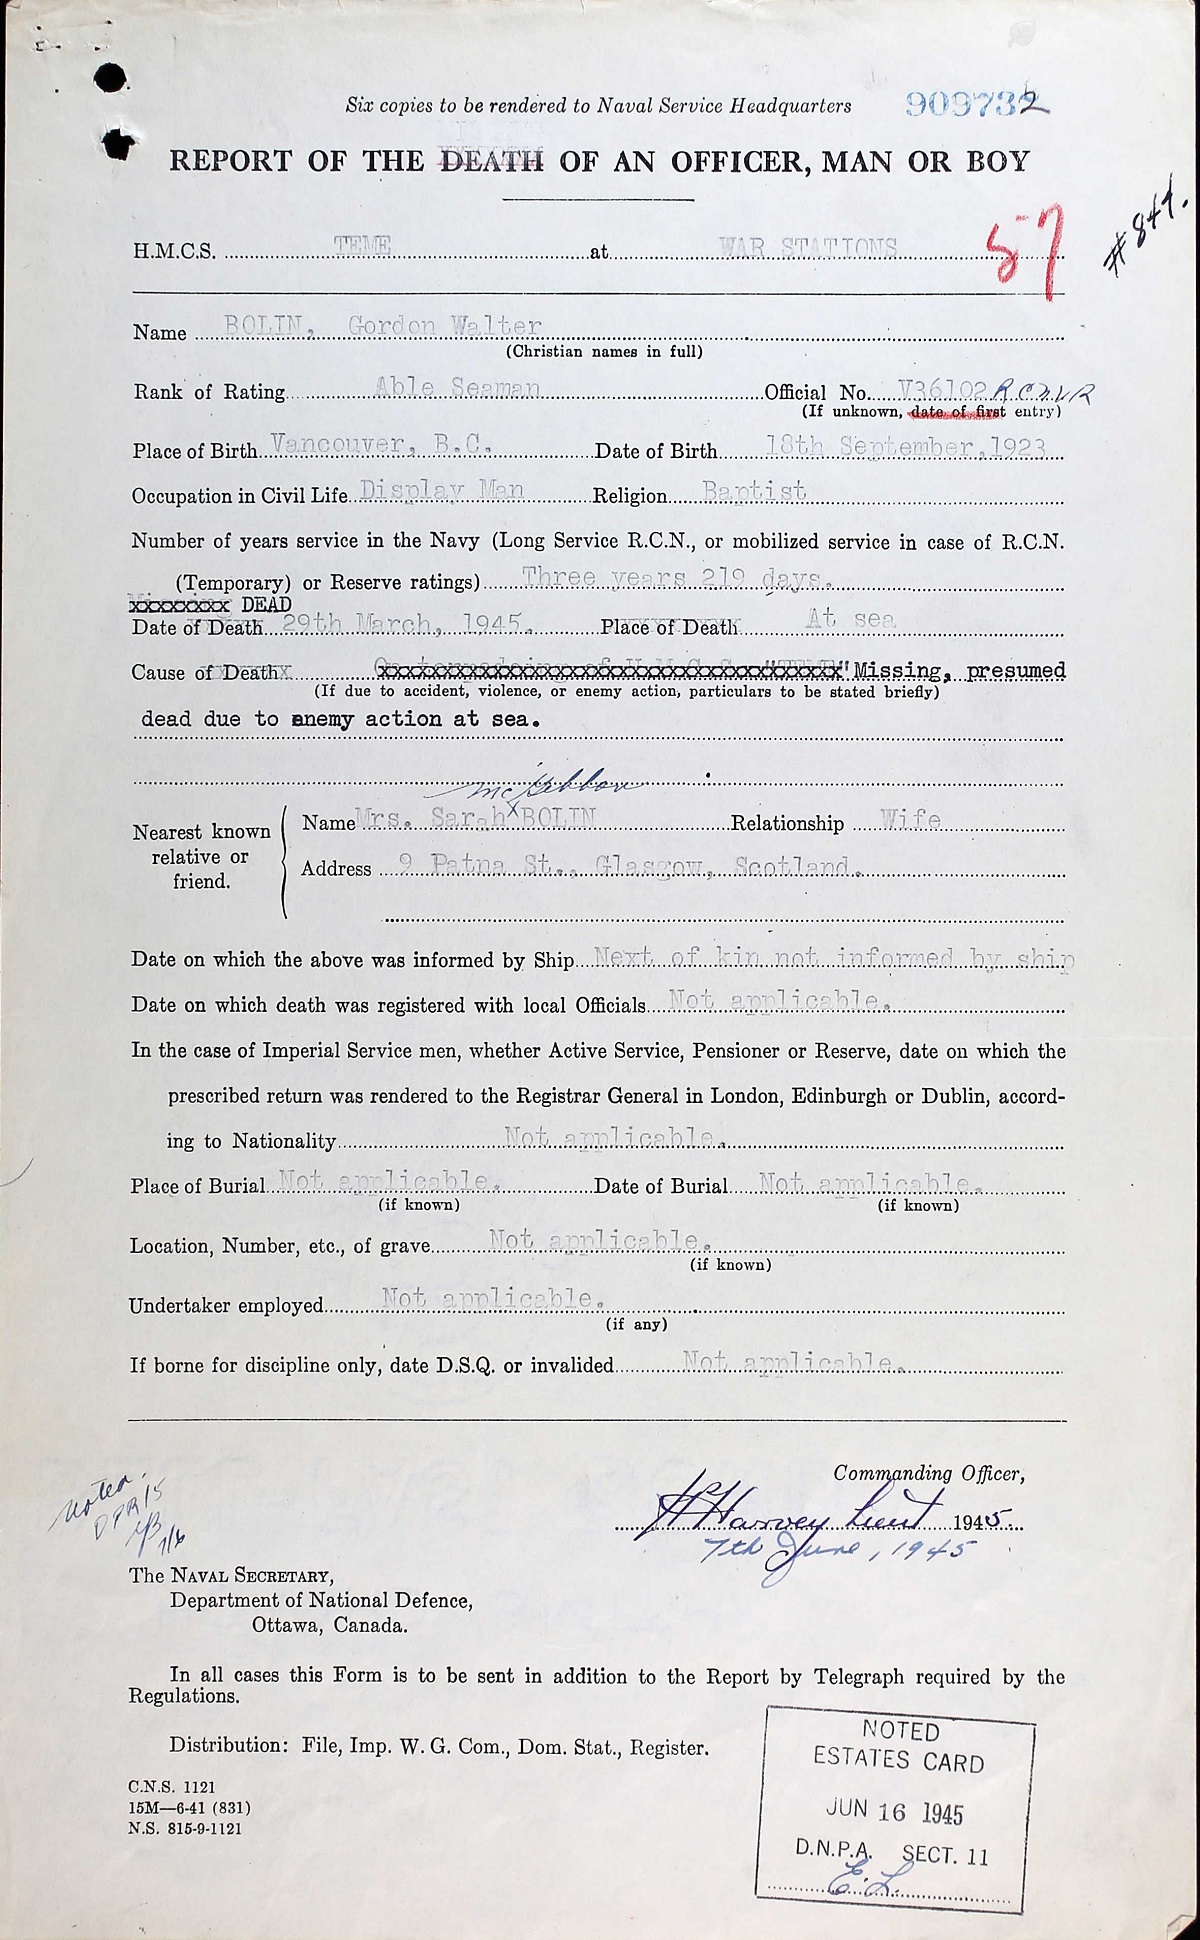 Six copies to be rendered to Naval Service Headquarters
909732
REPORT OF THE DEATH OF AN OFFICER, MAN OR BOY
#844.
57
H.M.C.S. TEME at WAR STATIONS
Name BOLIN, Gordon Walter
(Christian names in full)
Rank of Rating Able Seaman Official No. V36102 RCNVR
(If unknown, date of first entry)
Place of Birth Vancouver, B.C. Date of Birth 18th September, 1923
Occupation in Civil Life Display Man Religion Baptist
Number of years service in the Navy (Long Service R.C.N., or mobilized service in case of R.C.N.
(Temporary) or Reserve ratings) Three years 219 days.
DEAD
Date of Death 29th March, 1945. Place of Death At sea
Cause of Death On torpedoing of H.M.C.S. "TEME" Missing, presumed
(If due to accident, violence, or enemy action, particulars to be stated briefly)
dead due to enemy action at sea.
McGibbon
Nearest known relative or friend.
Name Mrs. Sarah x BOLIN Relationship Wife
Address 9 Patna St., Glasgow, Scotland.
Date on which the above was informed by Ship Next of kin not informed by ship
Date on which death was registered with local Officials Not applicable.
In the case of Imperial Service men, whether Active Service, Pensioner or Reserve, date on which the
prescribed return was rendered to the Registrar General in London, Edinburgh or Dublin, accord-
ing to Nationality Not applicable.
Place of Burial Not applicable. Date of Burial Not applicable.
(if known) (if known)
Location, Number, etc., of grave Not applicable.
(if known)
Undertaker employed Not applicable.
(if any)
If borne for discipline only, date D.S.Q. or invalided Not applicable.
Commanding Officer,
H Harvey Lieut 1945
7th June, 1945
Noted
DPR15
7/6
The NAVAL SECRETARY,
Department of National Defence,
Ottawa, Canada.
In all cases this Form is to be sent in addition to the Report by Telegraph required by the
Regulations.
Distribution: File, Imp. W. G. Com., Dom. Stat., Register.
C.N.S. 1121
15M—6-41 (831)
N.S. 815-9-1121
NOTED
ESTATES CARD
JUN 16 1945
D.N.P.A. SECT. 11
E.L.